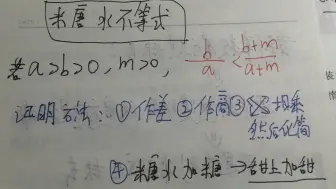 糖水不等式
若a>b>0,m>0, b/a < (b+m)/(a+m)
证明方法:①作差 ②作商 ③交叉相乘
然后化简
④糖水加糖→甜上加甜